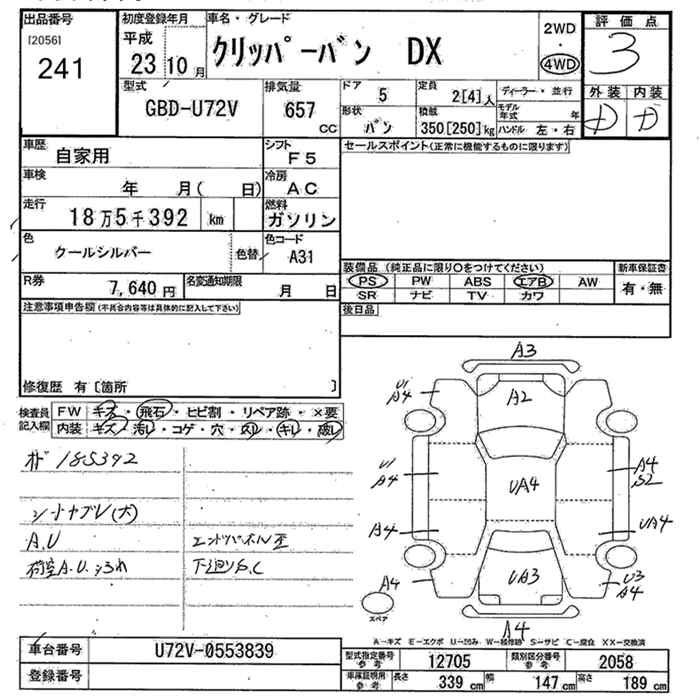 出品番号
[2056]
241
初度登録年月
平成
23 10 月
車名・グレード
クリッパーバン DX
2WD
・
4WD
評価点
3
外装 内装
D D
型式
GBD-U72V
排気量
657
CC
ドア 5
定員 2[4]人
ディーラー・並行
形状 バン
積載 350[250]kg
モデル年式 年
ハンドル 左・右
車歴
自家用
シフト
F5
車検
年 月( 日)
冷房
AC
走行
18万5千392 km
燃料
ガソリン
色
クールシルバー
色替
色コード
A31
R券
7,640円
名変通知期限
月 日
セールスポイント(正常に機能するものに限ります)
装備品(純正品に限り〇をつけてください)
PS PW ABS エアB AW
SR ナビ TV カワ
新車保証書
有・無
後日品
注意事項申告欄(不具合内容等は具体的に記入して下さい)
修復歴 有〔箇所 〕
検査員記入欄
FW キズ・飛石・ヒビ割・リペア跡・×要
内装 キズ・汚レ・コゲ・穴・スレ・キレ・
185392
A.U
A3
A2
U1
A4
U1
A4
UA4
A4
S2
A4
UA4
A4
UA3
U3
A4
A4
スペア
A-キズ E-エクボ U-凹み W-補修跡 S-サビ C-腐食 XX-交換済
車台番号
U72V-0553839
登録番号
型式指定番号 参考
12705
類別区分番号 参考
2058
車庫証明用 参考
長さ 339 cm
幅 147 cm
高さ 189 cm